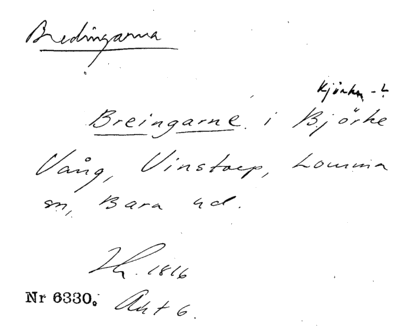 Bredingarna
Kjörke-?
Breingarne i Björke
Vång, Vinstorp, Lomma
sn, Bara hd.
Jh. 1816
Nr 6330. Akt 6.